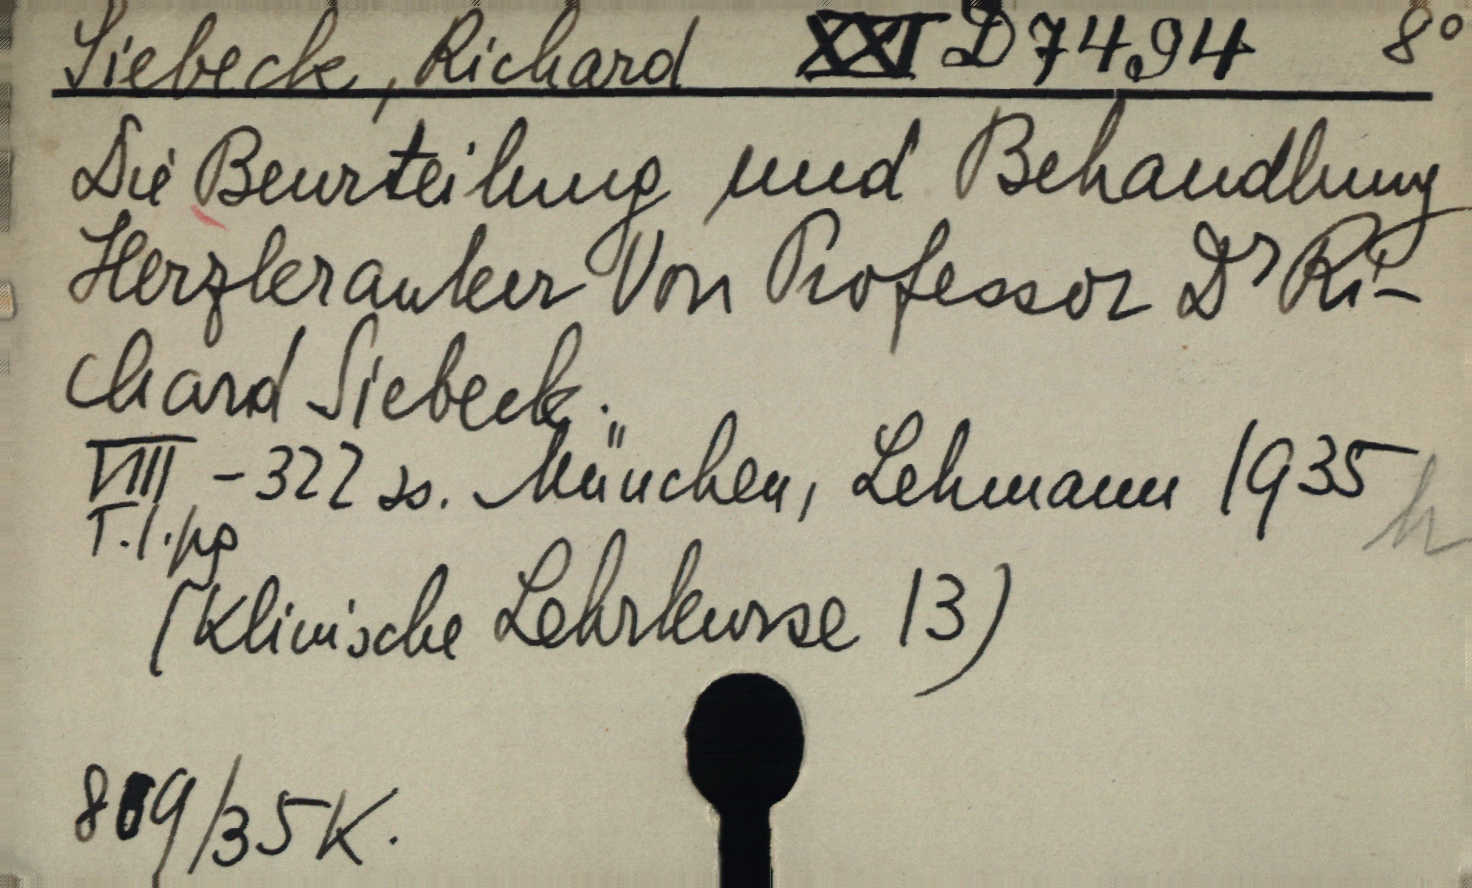 Siebeck, Richard XXI D 7494 8°
Die Beurteilung und Behandlung
Herzkranker Von Professor Dr Ri-
chard Siebeck.
VIII - 322 ss. München, Lehmann 1935
T. 1. pg
(Klinische Lehrkurse 13)
809/35 K.